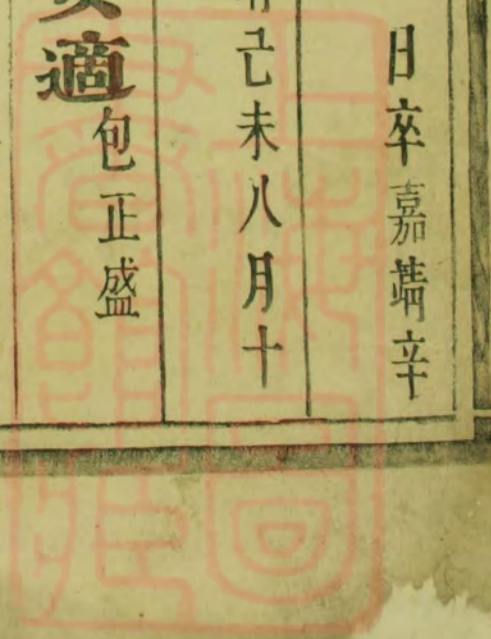 日卒嘉靖辛
己未八月十
適包正盛